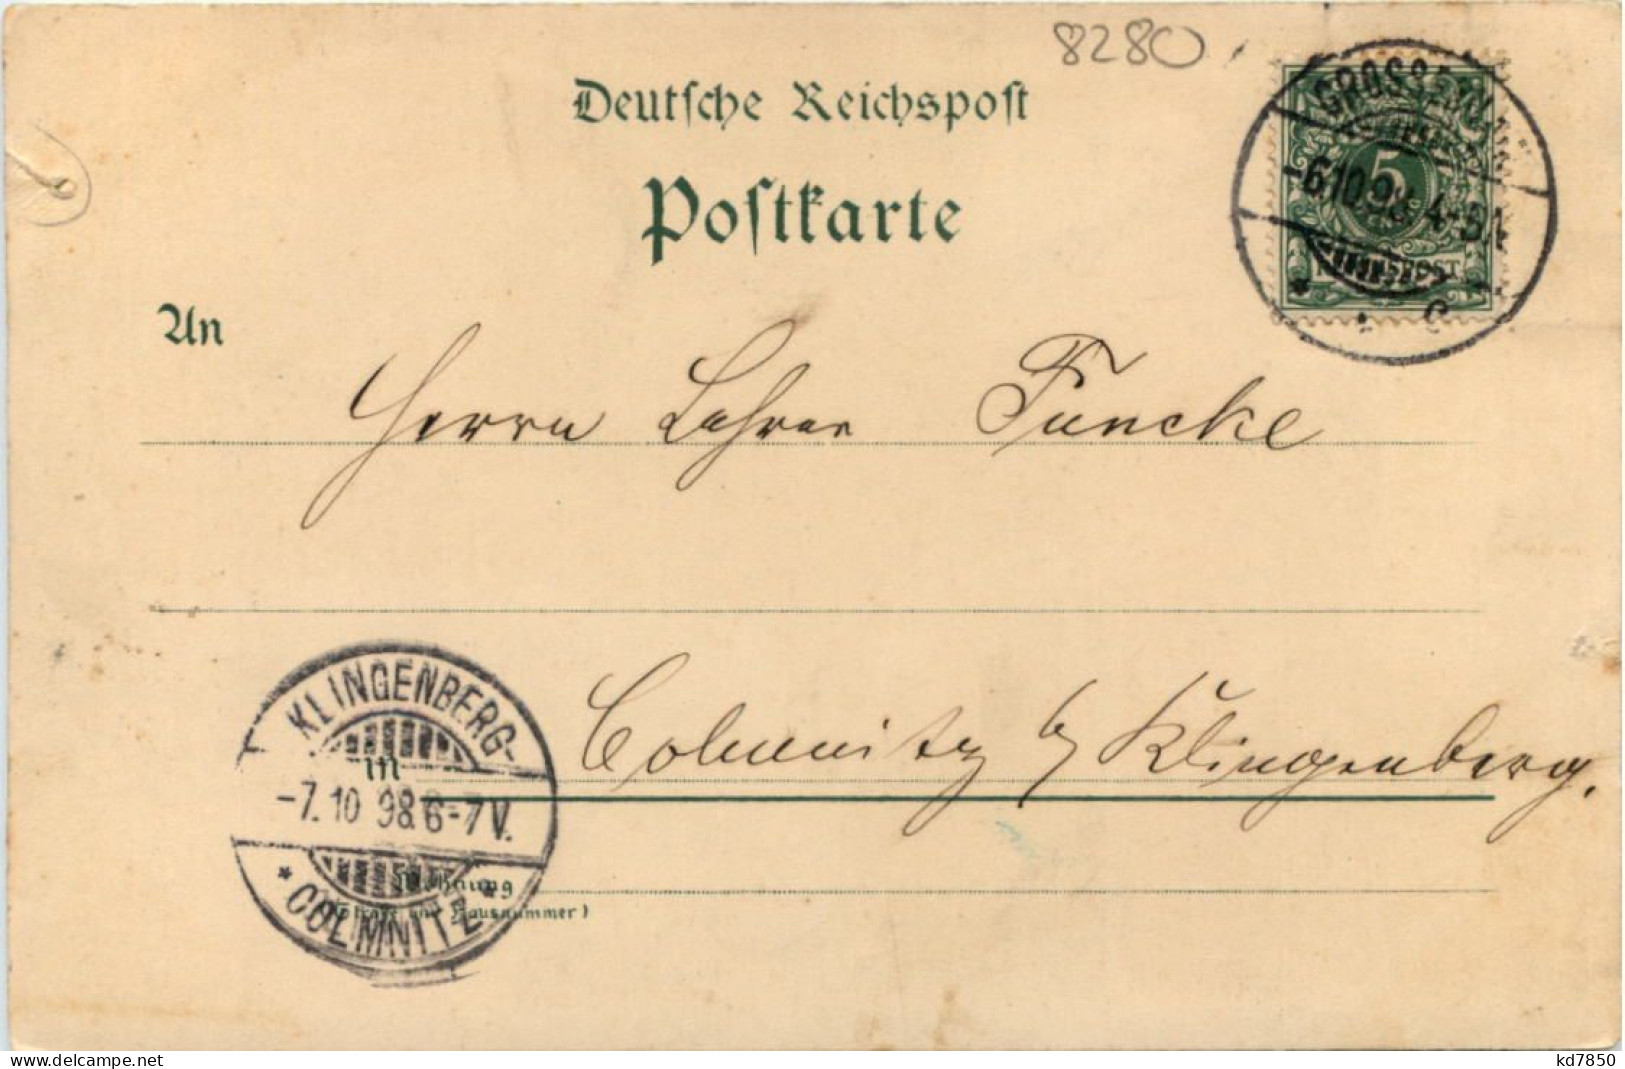 8280
Deutsche Reichspost
Postkarte
GROSSENHAIN
5
-6.10.98 4-5N
REICHSPOST
* c
An
Herrn Lehrer Funcke
Colmnitz b/ Klingenberg.
in
KLINGENBERG-
-7.10 98 6-7V.
* COLMNITZ *
Wohnung
(Strasse und Hausnummer)
www.delcampe.net
kd7850